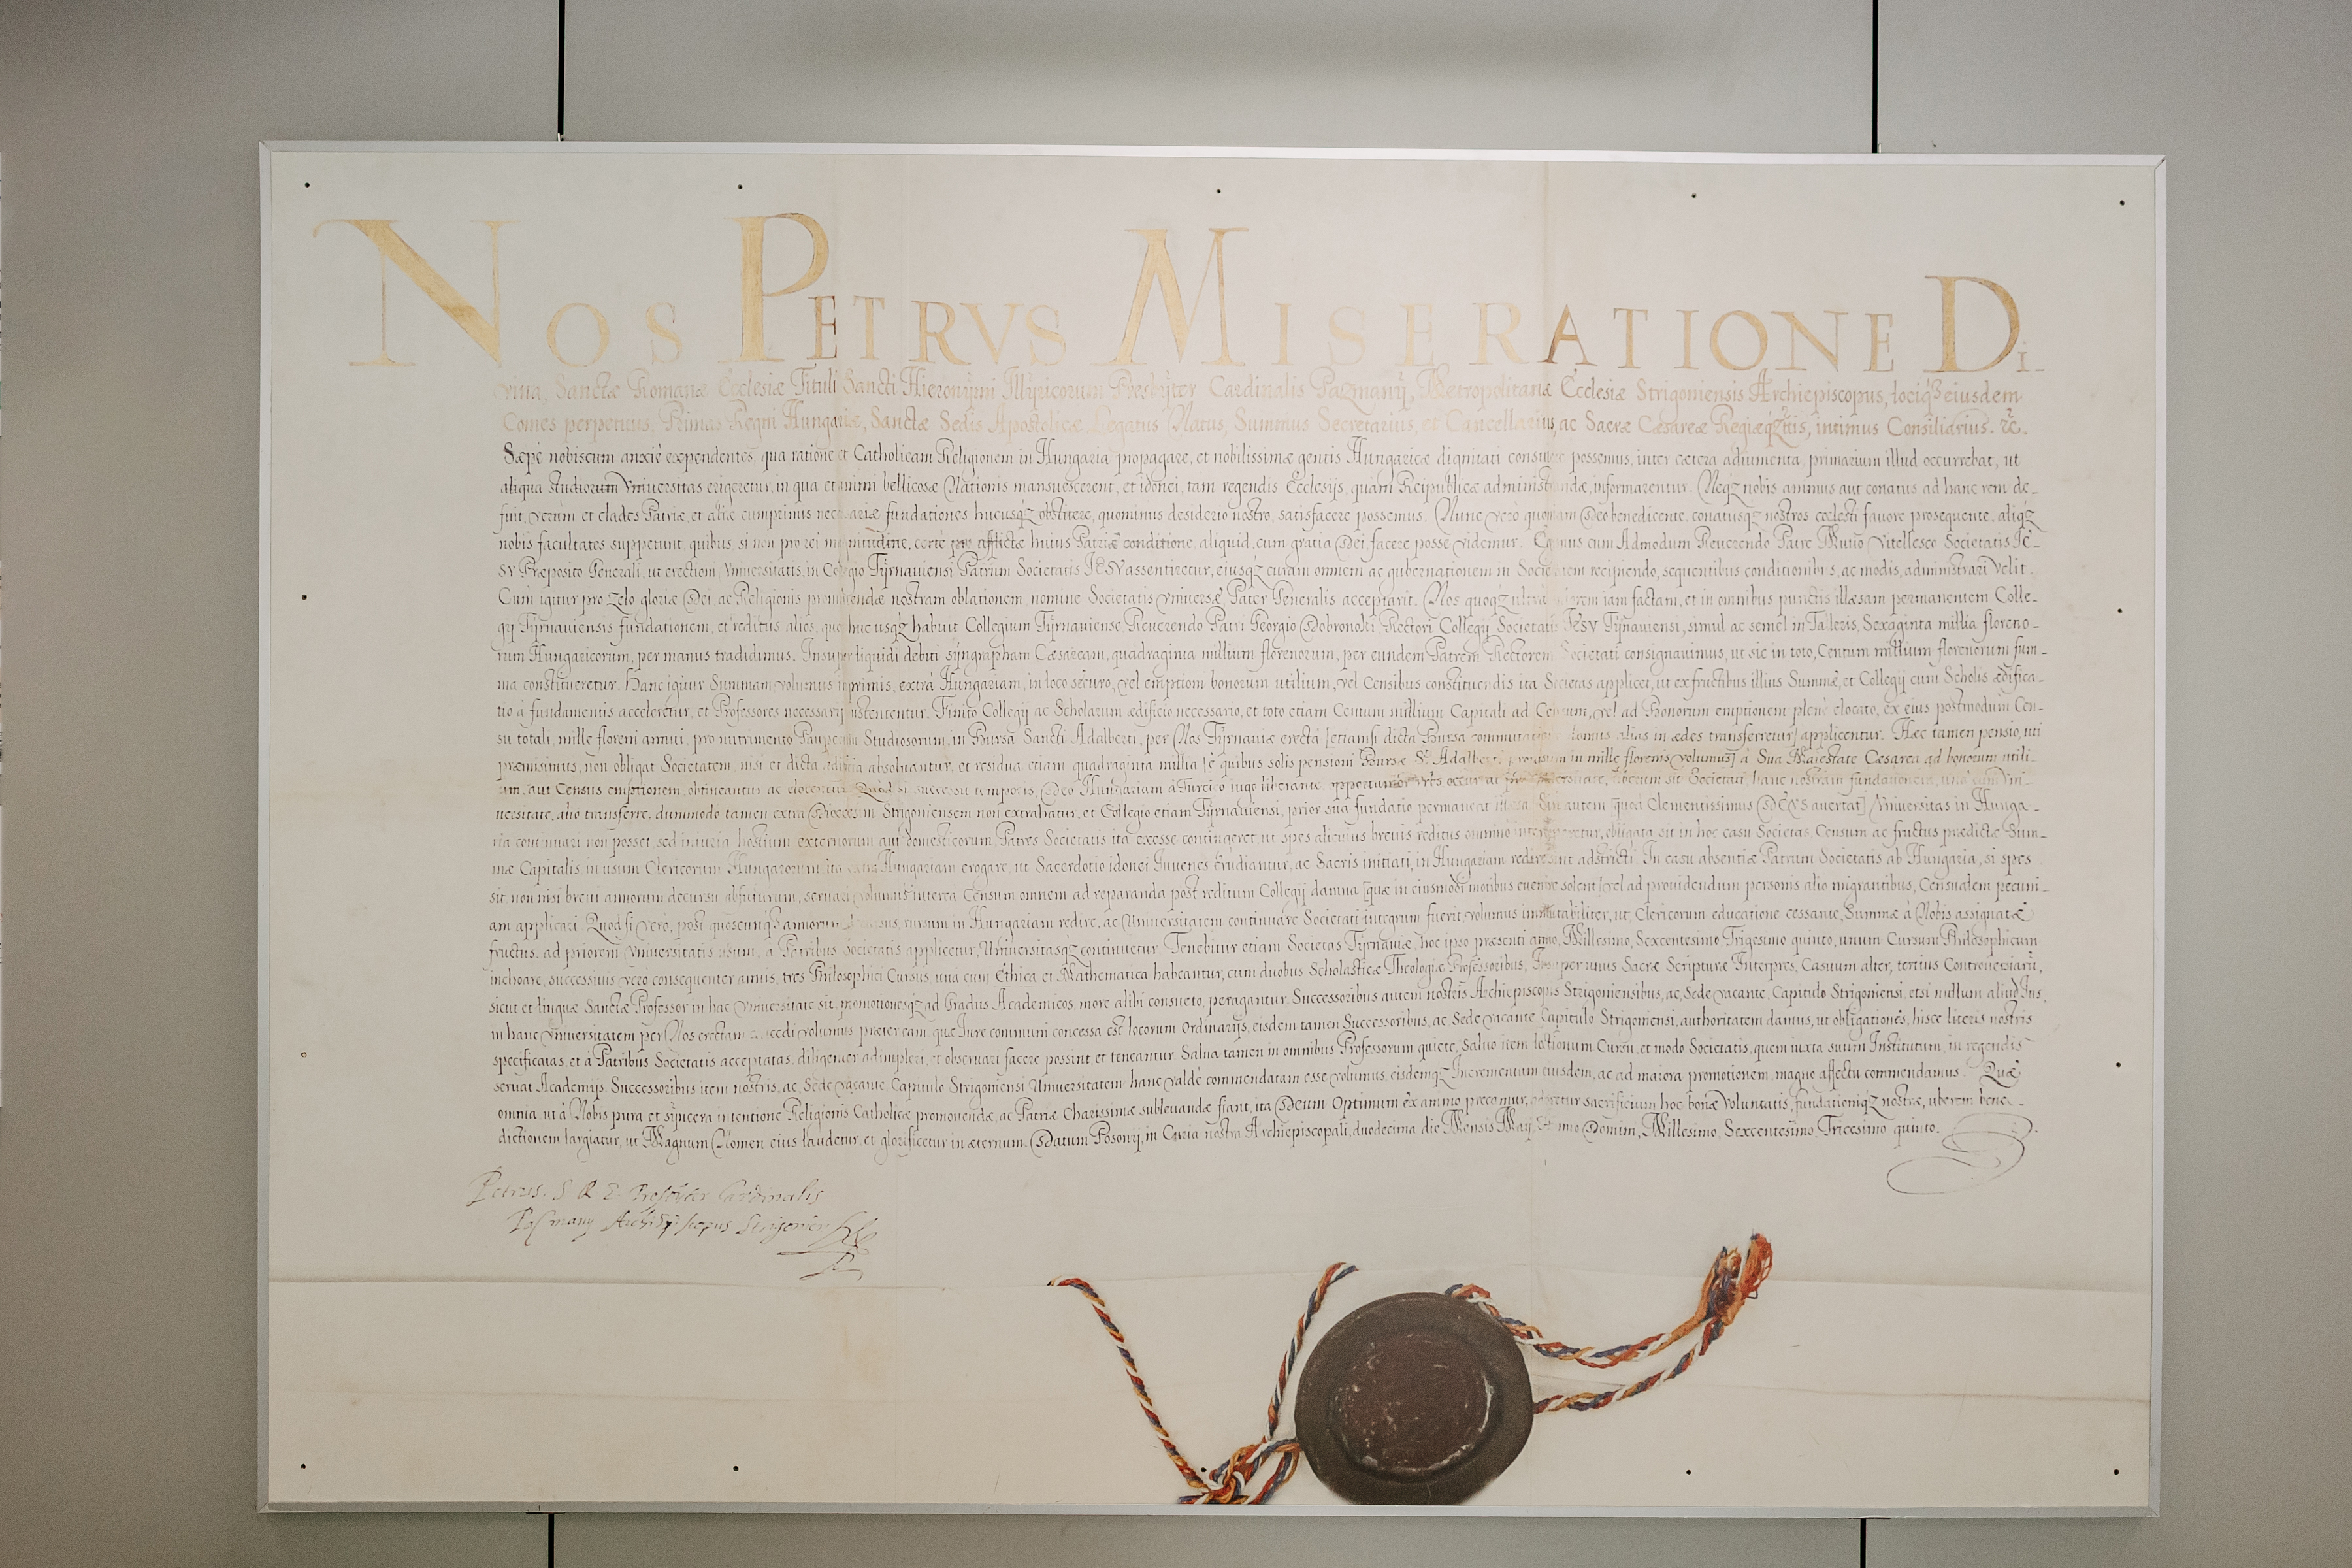 NOS PETRVS MISERATIONE DI-
vina, Sanctæ Romanæ Ecclesiæ Tituli Sancti Hieronÿmi Illÿricorum Presbÿter Cardinalis Pazmanÿ, Metropolitanæ Ecclesiæ Strigoniensis Archiepiscopus, lociqꝫ eiusdem
Comes perpetuus, Primas Regni Hungariæ, Sanctæ Sedis Apostolicæ Legatus Natus, Summus Secretarius, et Cancellarius, ac Sacræ Cæsareæ Intimus Consiliarius. ꝛc.
Sæpè nobiscum anxiè expendentes, qua ratione et Catholicam Religionem in Hungaria propagare, et nobilissimæ gentis Hungaricæ dignitati possemus, inter cætera adiumenta, primarium illud occurrebat, ut
aliqua studiorum Vniversitas erigeretur, in qua et animi bellicosæ Nationis mansuescerent, et idonei, tam regendis Ecclesijs, quàm Reipublicæ administrandæ, informarentur. Neqꝫ nobis animus aut conatus ad hanc rem de-
fuit, verùm et clades Patriæ, et aliæ cumprimis fundationes hucusqꝫ obstitere, quominus desiderio nostro, satisfacere possemus. Nunc verò quoniam Deo benedicente, conatusqꝫ nostros cœlesti fauore prosequente, aliqꝫ
nobis facultates suppetunt, quibus si non pro rei magnitudine, certè pro afflictæ huius Patriæ conditione, aliquid, cum gratia Dei, facere posse videmur. cum Admodum Reuerendo Patre Mutio Vitellesco Societatis IE-
SV Præposito Generali, ut erectioni Vniuersitatis, in Collegio Tÿrnauiensi Patrum Societatis IESV assentiretur, eiusqꝫ curam omnem ac gubernationem in Societatem recipiendo, sequentibus conditionibus, ac modis, administrari velit.
Cum igitur pro zelo gloriæ Dei, ac Religionis promouendæ nostram oblationem, nomine Societatis Vniuersæ Pater Generalis acceptarit. Nos quoqꝫ ultra iam factam, et in omnibus punctis illæsam permanentem Colle-
gij Tÿrnauiensis fundationem, et reditus alios, quos huc usqꝫ habuit Collegium Tÿrnauiense, Reuerendo Patri Georgio Dobronoki Rectori Collegij Societatis IESV Tÿrnauiensi, simul ac semel in Talleris, Sexaginta millia floreno-
rum Hungaricorum, per manus tradidimus. Insuper liquidi debiti sÿngrapham Cæsaream, quadraginta millium florenorum, per eundem Patrem Rectorem Societati consignauimus, ut sic in toto, Centum millium florenorum sum-
ma constitueretur. Hanc igitur Summam volumus inprimis, extrà Hungariam, in loco securo, vel emptioni bonorum utilium, vel Censibus constituendis ita Societas applicet, ut ex fructibus illius Summæ, et Collegij cum Scholis ædifica-
tio à fundamentis acceleretur, et Professores necessarij sustententur. Finito Collegij ac Scholarum ædificio necessario, et toto etiam Centum millium Capitali ad Censum, vel ad Bonorum emptionem plenè elocato, ex eius postmodum Cen-
su totali, mille floreni annui, pro nutrimento Pauperum Studiosorum, in Bursa Sancti Adalberti, per Nos Tÿrnauiæ erecta [etiamsi dicta Bursa domus alias in ædes transferretur] applicentur. Hæc tamen pensio, uti
præmisimus, non obligat Societatem, nisi et dicta ædificia absoluantur, et residua etiam quadraginta millia [è quibus solis pensioni Bursæ Sti Adalberti in mille florenis volumus] à Sua Maiestate Cæsarea ad bonorum utili-
um, aut Census emptionem, obtineantur ac elocentur. Quod si successu temporis, Deo Hungariam à Turcico iugo liberante, opportunior liberum sit Societati hanc nostram fundationem, unà cum Vni-
uersitate, aliò transferre, dummodo tamen extra Diœcesim Strigoniensem non extrahatur, et Collegio etiam Tÿrnauiensi, prior sua fundatio permaneat autem [quod Clementissimus DEVS auertat] Vniuersitas in Hunga-
ria continuari non posset, sed iniuria hostium externorum aut domesticorum, Patres Societatis ita excesse contingeret, ut spes alicuius breuis reditus omnino obligata sit in hoc casu Societas, Censum ac fructus prædictæ Sum-
mæ Capitalis, in usum Clericorum Hungarorum ita extra Hungariam erogare, ut Sacerdotio idonei Iuuenes Erudiantur, ac Sacris initiati, in Hungariam redire sint adstricti. In casu absentiæ Patrum Societatis ab Hungaria, si spes
sit non nisi breui annorum decursu abfuturum, seruari volumus interea Censum omnem ad reparanda post reditum Collegij damna [quæ in eiusmodi motibus euenire solent] vel ad prouidendum personis aliò migrantibus, Censualem pecuni-
am applicari. Quod si verò, post quoscunqꝫ annorum, rursum in Hungariam redire, ac Vniuersitatem continuare Societati integrum fuerit, volumus immutabiliter, ut, Clericorum educatione cessante, Summæ à Nobis assignatæ
fructus, ad priorem Vniuersitatis usum, à Patribus Societatis applicetur, Vniuersitasqꝫ continuetur. Tenebitur etiam Societas Tÿrnauiæ, hoc ipso præsenti anno, Millesimo, Sexcentesimo Trigesimo quinto, unum Cursum Philosophicum
inchoare, successiuis verò consequenter annis, tres Philosophici Cursus, unà cum Ethica et Mathematica habeantur, cum duobus Scholasticæ Theologiæ Professoribus, Insuper unus Sacræ Scripturæ Interpres, Casuum alter, tertius Controuersiarũ,
sicut et linguæ Sanctæ Professor in hac Vniuersitate sit, promotionesqꝫ ad Gradus Academicos, more alibi consueto, peragantur. Successoribus autem nostris Archiepiscopis Strigoniensibus, ac, Sede vacante, Capitulo Strigoniensi, etsi nullum aliud Ius,
in hanc Vniuersitatem per Nos erectam concedi volumus præter eam quæ Iure communi concessa est locorum Ordinarijs, eisdem tamen Successoribus, ac Sede vacante Capitulo Strigoniensi, authoritatem damus, ut obligationes, hisce literis nostris
specificatas, et à Patribus Societatis acceptatas, diligenter adimpleri, et obseruari facere possint et teneantur. Salua tamen in omnibus Professorum quiete, Saluo item lectionum Cursu, et modo Societatis, quem iuxta suum Institutum, in regendis
seruat Academijs. Successoribus item nostris, ac, Sede vacante, Capitulo Strigoniensi Vniuersitatem hanc valdè commendatam esse volumus, eisdemqꝫ Incrementum eiusdem, ac ad maiora promotionem, magno affectu commendamus. Quæ
omnia, ut à Nobis pura et sÿncera intentione Religionis Catholicæ promouendæ, ac Patriæ Charissimæ subleuandæ fiant, ita Deum Optimum ex animo precamur, sacrificium hoc bonæ voluntatis, fundationiqꝫ nostræ, uberem bene-
dictionem largiatur, ut Magnum Nomen eius laudetur, et glorificetur in æternum. Datum Posonij, in Curia nostra Archiepiscopali, duodecima die Mensis Maij, Anno Domini, Millesimo, Sexcentesimo, Tricesimo quinto.
Petrus. S R E. Presbiter Cardinalis
Pasmany Strigonien